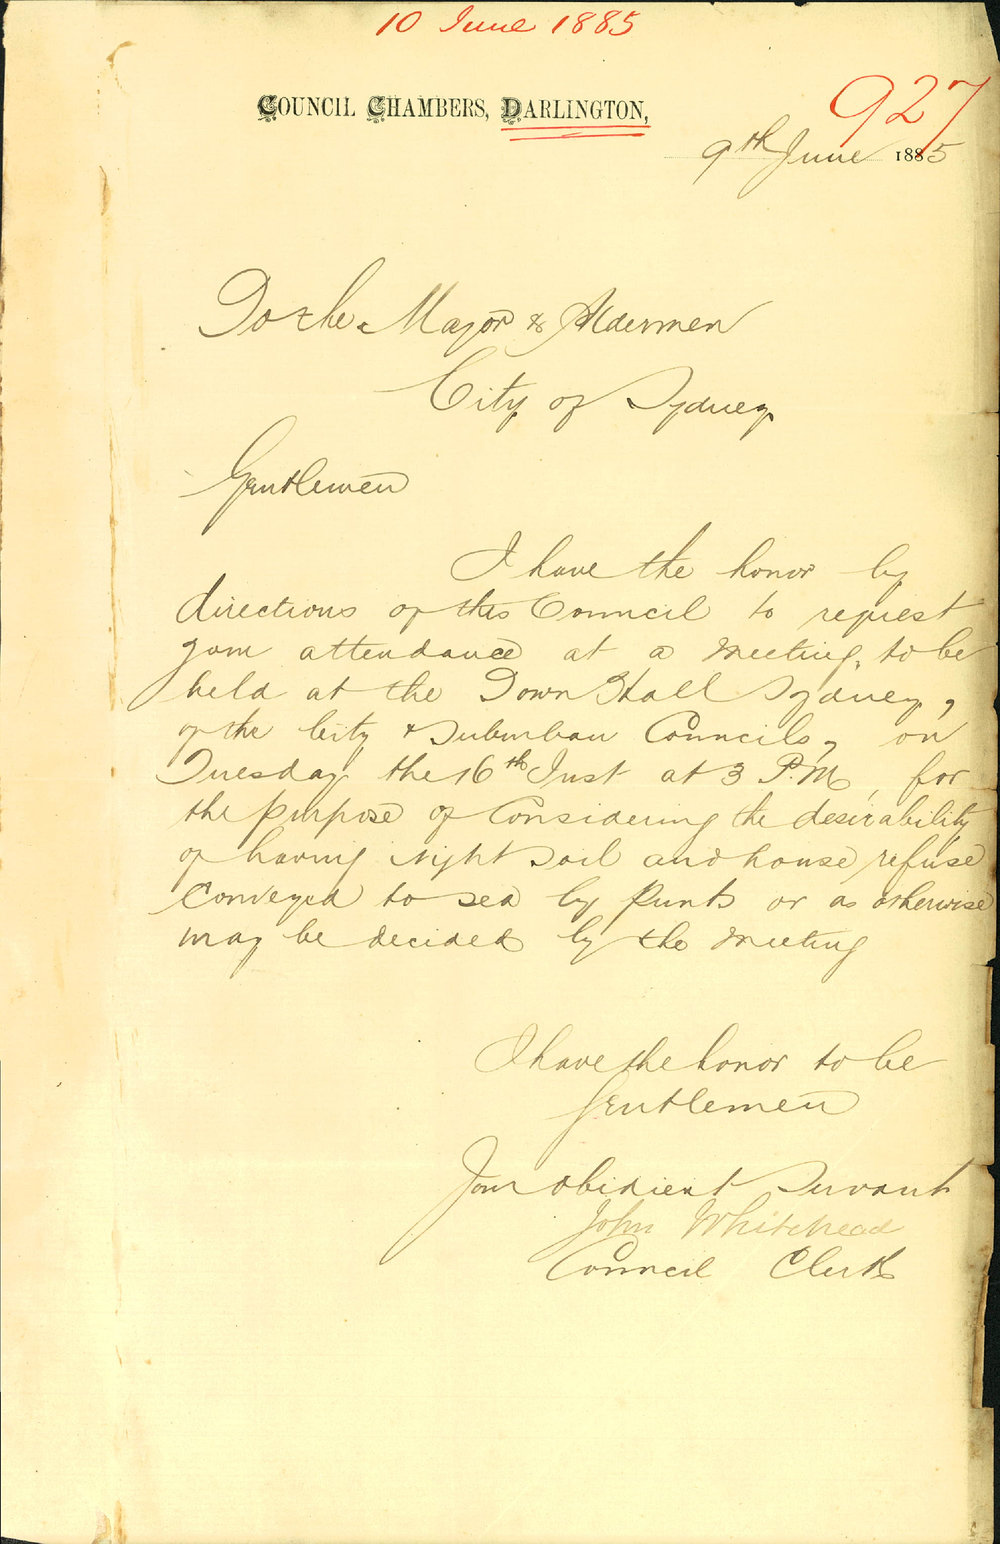 10 June 1885
927
COUNCIL CHAMBERS, DARLINGTON,
9th June 1885
To the Mayor & Aldermen
City of Sydney
Gentlemen
I have the honor by
directions of this Council to request
your attendance at a meeting, to be
held at the Town Hall Sydney,
of the City & Suburban Councils, on
Tuesday the 16th Inst at 3 P.M, for
the purpose of Considering the desirability
of having night soil and house refuse
Conveyed to sea by punts or as otherwise
may be decided by the meeting
I have the honor to be
Gentlemen
Your obidient Servant
John Whitehead
Council Clerk